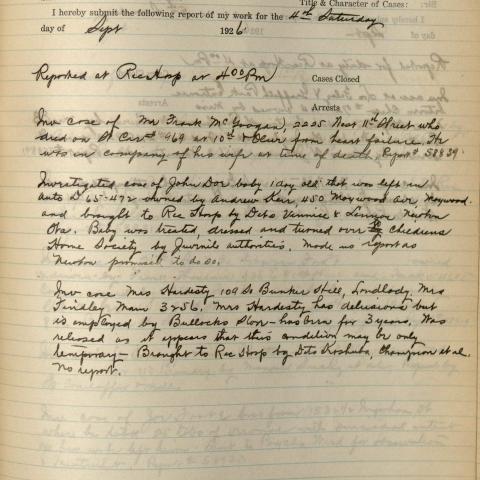 Title & Character of Cases:
I hereby submit the following report of my work for the 4th Saturday
day of Sept 1926
Reported at Rec Hosp at 4 00 PM
Cases Closed
Arrests
Inv case of Mr Frank McGoogan, 2225 Nor 11th Street who
died on St Car # 969 at 10th & Clair from heart failure. He
was in company of his wife at time of death, Report 58439
Investigated case of John Doe baby 1 day old that was left in
auto D 65-472 owned by Andrew Kerr, 450 Maywood Air, Maywood
and brought to Rec Hosp by Dets Vinnie & Newton
Baby was treated, dressed and turned over to Childrens
Home Society by Juvenile authorities. Made no report as
Newton promised to do so.
Inv case Mrs Hardesty 109 So Bunker Hill, Landlady, Mrs
Findley Main 3256. Mrs Hardesty has delusions but
is employed by Bullocks Store - has been for 3 years. Was
released as it appears that this condition may be only
temporary - Brought to Rec Hosp by Dets Koshuba, Champion et al.
No report.